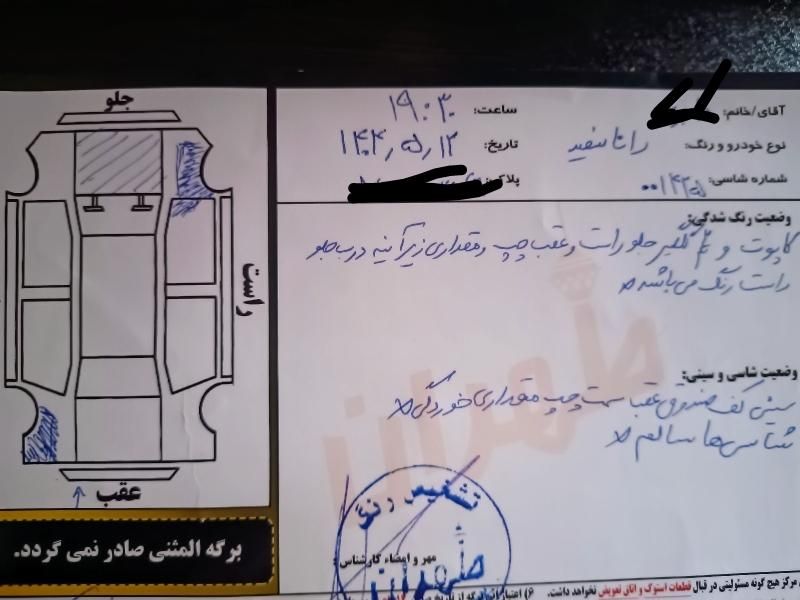 جلو
راست
عقب
برگه المثنی صادر نمی گردد.
آقای/خانم:
ساعت: ۱۹:۳۰
نوع خودرو و رنگ: رانا سفید
تاریخ: ۱۴۰۴,۵,۱۲
شماره شاسی:
پلاک:
وضعیت رنگ شدگی:
کاپوت و گلگیر جلو راست و عقب چپ و مقداری زیر آینه درب جلو
راست رنگ می باشد
وضعیت شاسی و سینی:
سینی کف صندوق عقب سمت چپ مقداری خوردگی
شاسی ها سالم
تشخیص رنگ
طهران
مهر و امضاء کارشناس:
مرکز هیچ گونه مسئولیتی در قبال قطعات استوک و اتاق تعویض نخواهد داشت.